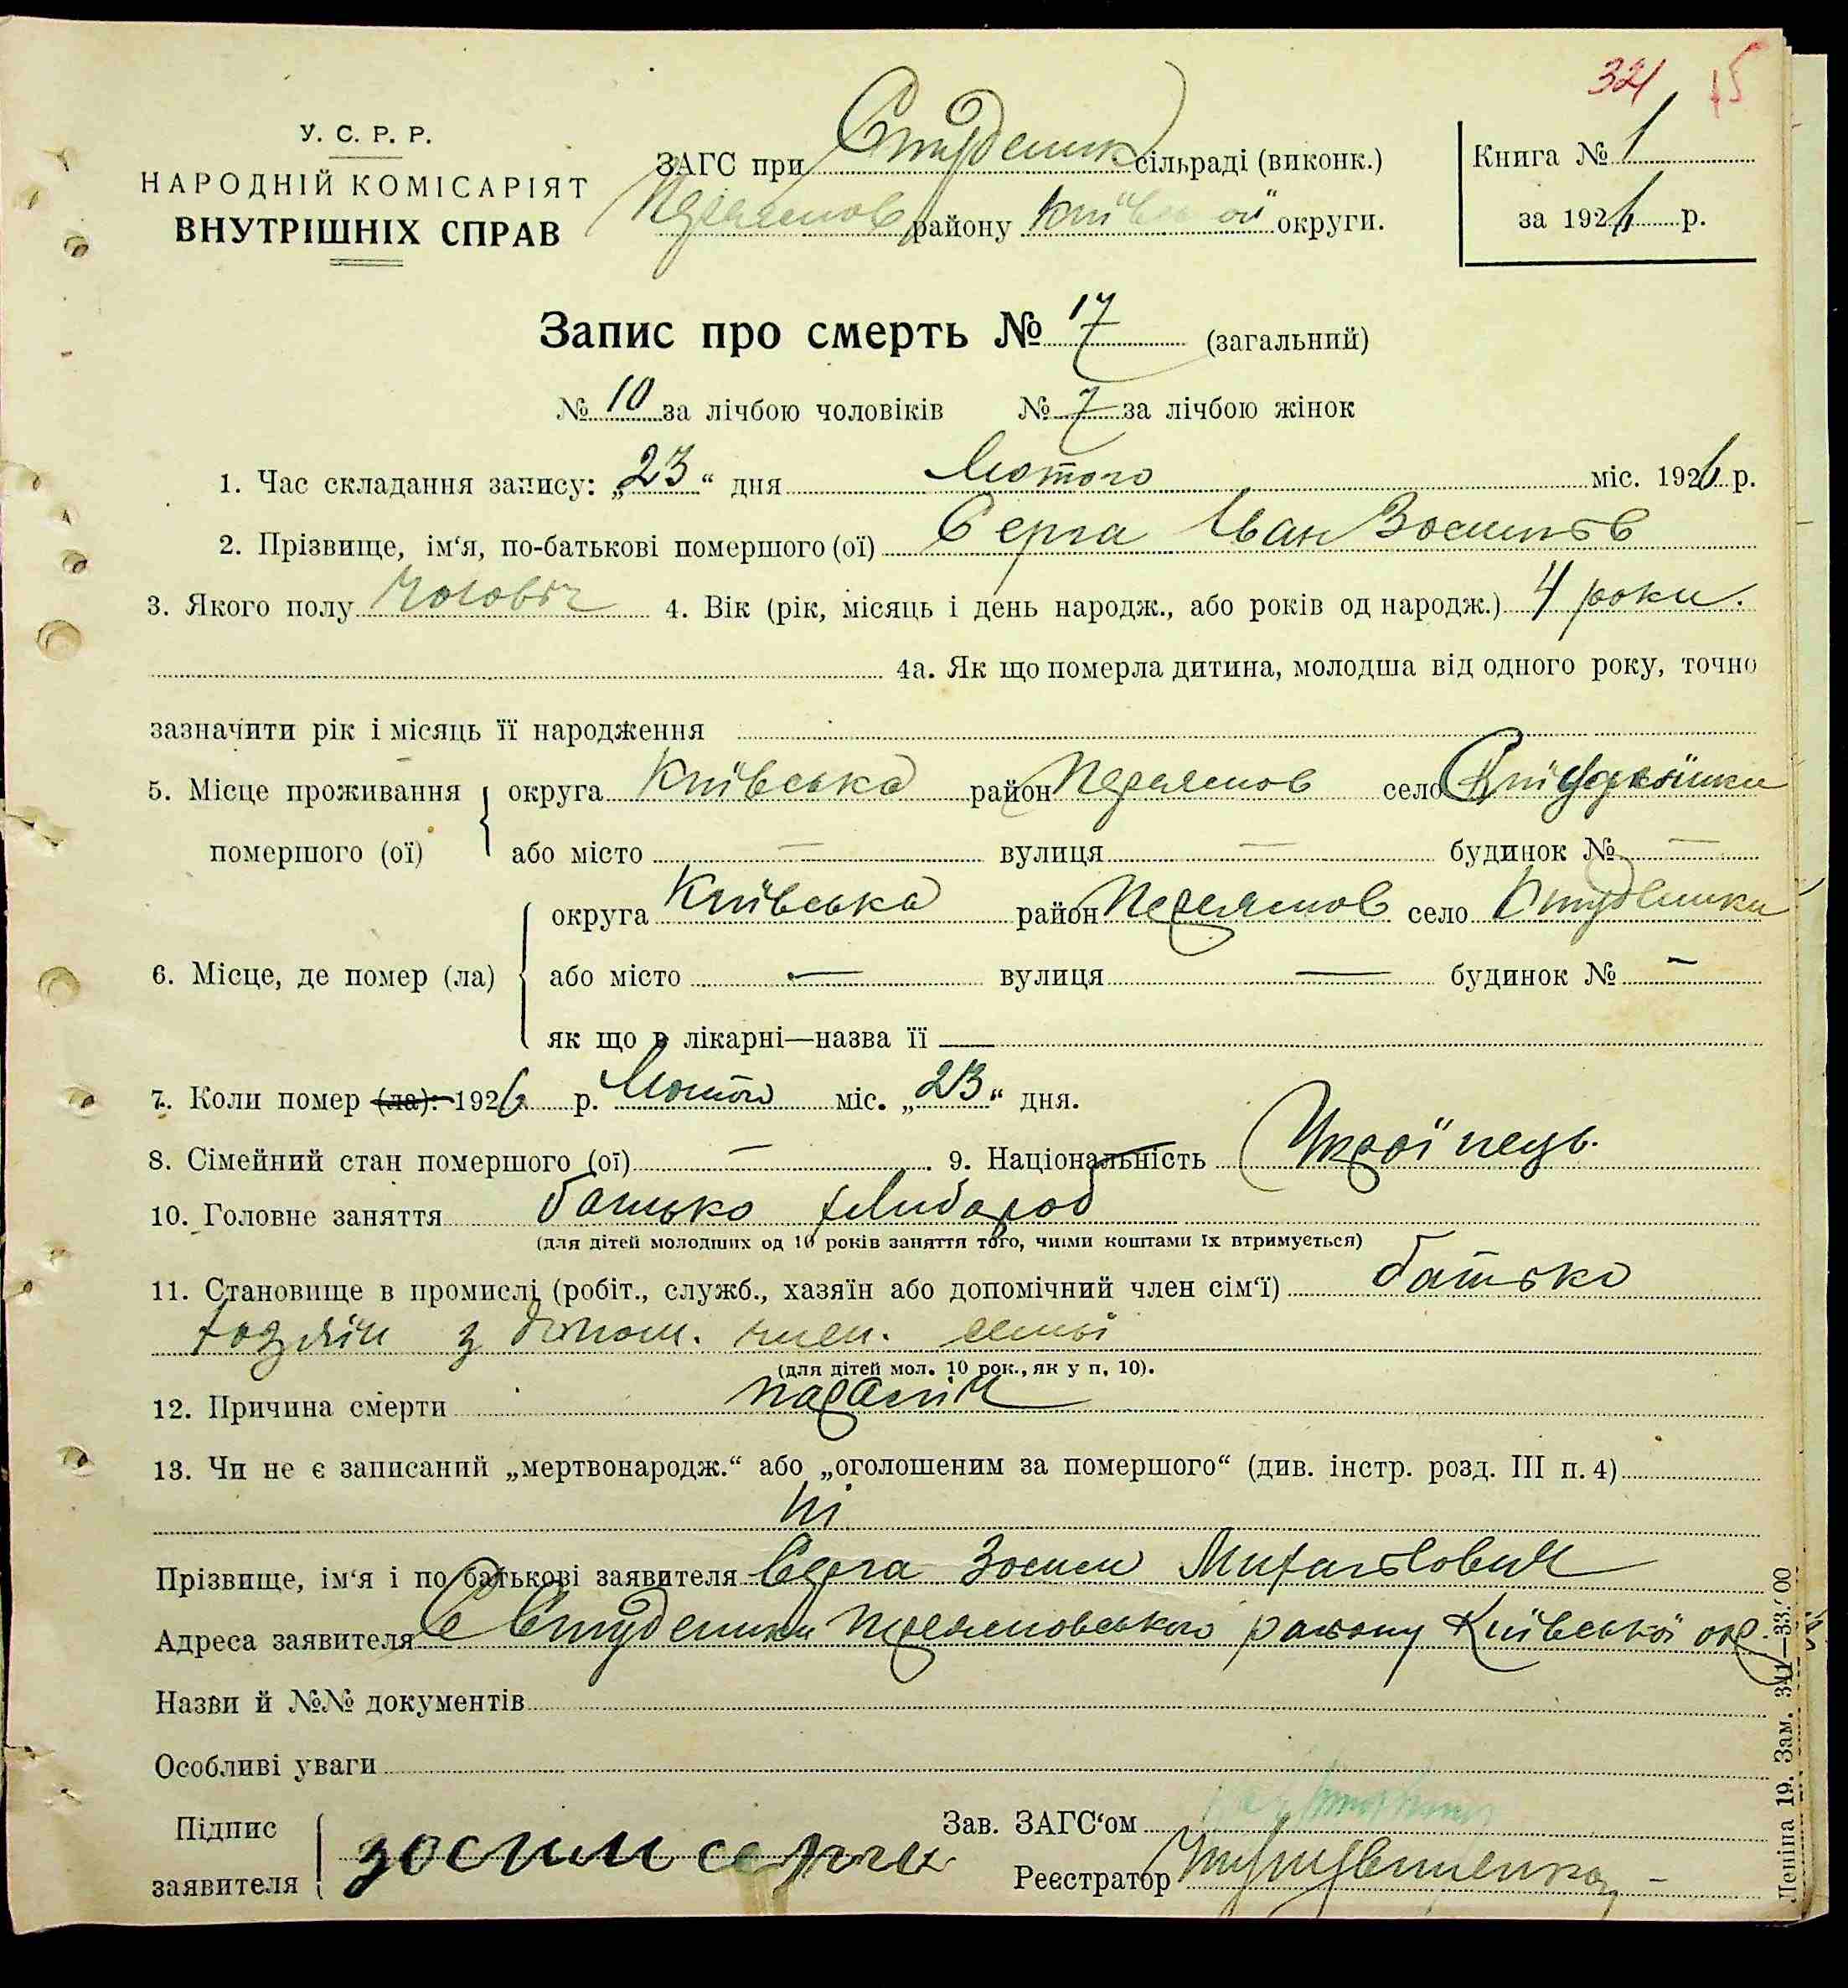 321 15
У. С. Р. Р.
НАРОДНІЙ КОМІСАРІЯТ
ВНУТРІШНІХ СПРАВ
ЗАГС при Студеник сільраді (виконк.)
Переяслов району Київської округи.
Книга № 1
за 1926 р.
Запис про смерть № 17 (загальний)
№ 10 за лічбою чоловіків № 7 за лічбою жінок
1. Час складання запису: „23“ дня Лютого міс. 1926 р.
2. Прізвище, ім‘я, по-батькові помершого (ої) Серга Іван Зосимів
3. Якого полу чоловіч 4. Вік (рік, місяць і день народж., або років од народж.) 4 роки.
4а. Як що померла дитина, молодша від одного року, точно
зазначити рік і місяць її народження
5. Місце проживання помершого (ої) округа Київська район Переяслов село
або місто — вулиця — будинок № —
6. Місце, де помер (ла) округа Київська район Переяслов село Студеники
або місто — вулиця — будинок № —
як що в лікарні—назва її —
7. Коли помер (ла): 1926 р. Лютого міс. „23“ дня.
8. Сімейний стан помершого (ої) — 9. Національність Українець.
10. Головне заняття батько хлібороб
(для дітей молодших од 10 років заняття того, чиїми коштами їх втримується)
11. Становище в промислі (робіт., служб., хазяїн або допомічний член сім‘ї) батько
хазяїн з допом. член. семьї
(для дітей мол. 10 рок., як у п. 10).
12. Причина смерти
13. Чи не є записаний „мертвонародж.“ або „оголошеним за помершого“ (див. інстр. розд. III п. 4)
ні
Прізвище, ім‘я і по батькові заявителя Серга Зосим Михайлович
Адреса заявителя С Студеники Переясловського району Київської окр.
Назви й №№ документів
Особливі уваги
Підпис заявителя зосим серга
Зав. ЗАГС‘ом
Реєстратор
Леніна 19. Зам. 341—33.000